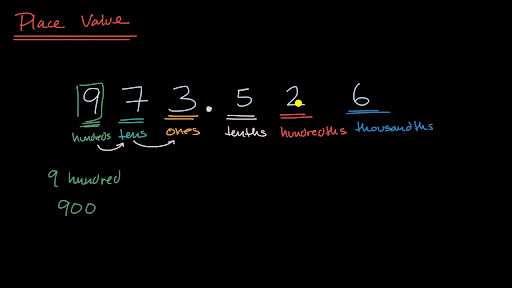 Place Value
973.526
hundreds tens ones tenths hundredths thousandths
9 hundred
900